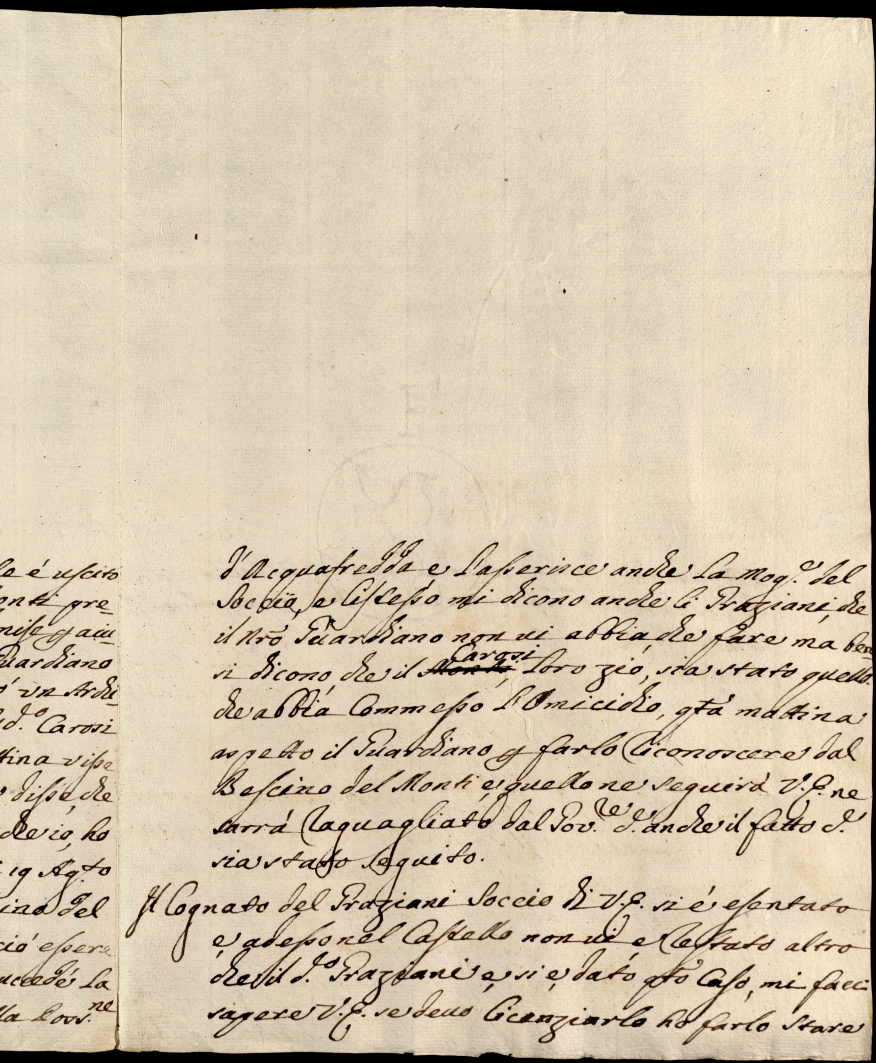 le é uscito
onti pre
mise p aiu-
Guardiano
ó un Archi-
d.º Carosi
ttina visse
o disse, che
che io, ho
i 19 Ag.to
ino del
ció essere
uccede la
lla Poss.ne
d'Acquafredda e l'asserisce anche la mog.e del
Soccio, e l'istesso mi dicono anche li Graziani, che
il nrõ Guardiano non vi abbia, che fare ma ben
si dicono che il Monti Carosi, loro zio, sia stato quello
che abbia Commesso l'Omicidio, qtã mattina
aspetto il Guardiano p farlo riconoscere dal
Bescino del Monti e quello ne seguirá V.E. ne
sarrá raguagliato dal Gov.re d. anche il fatto d.
sia stato seguito.
Il Cognato del Graziani Soccio di V.E. si é esentato
e adesso nel Castello non vi e restato altro
che il d.º Graziani e, si e, dato qtõ Caso, mi facci
sapere V.E. se devo licenziarlo ho farlo stare